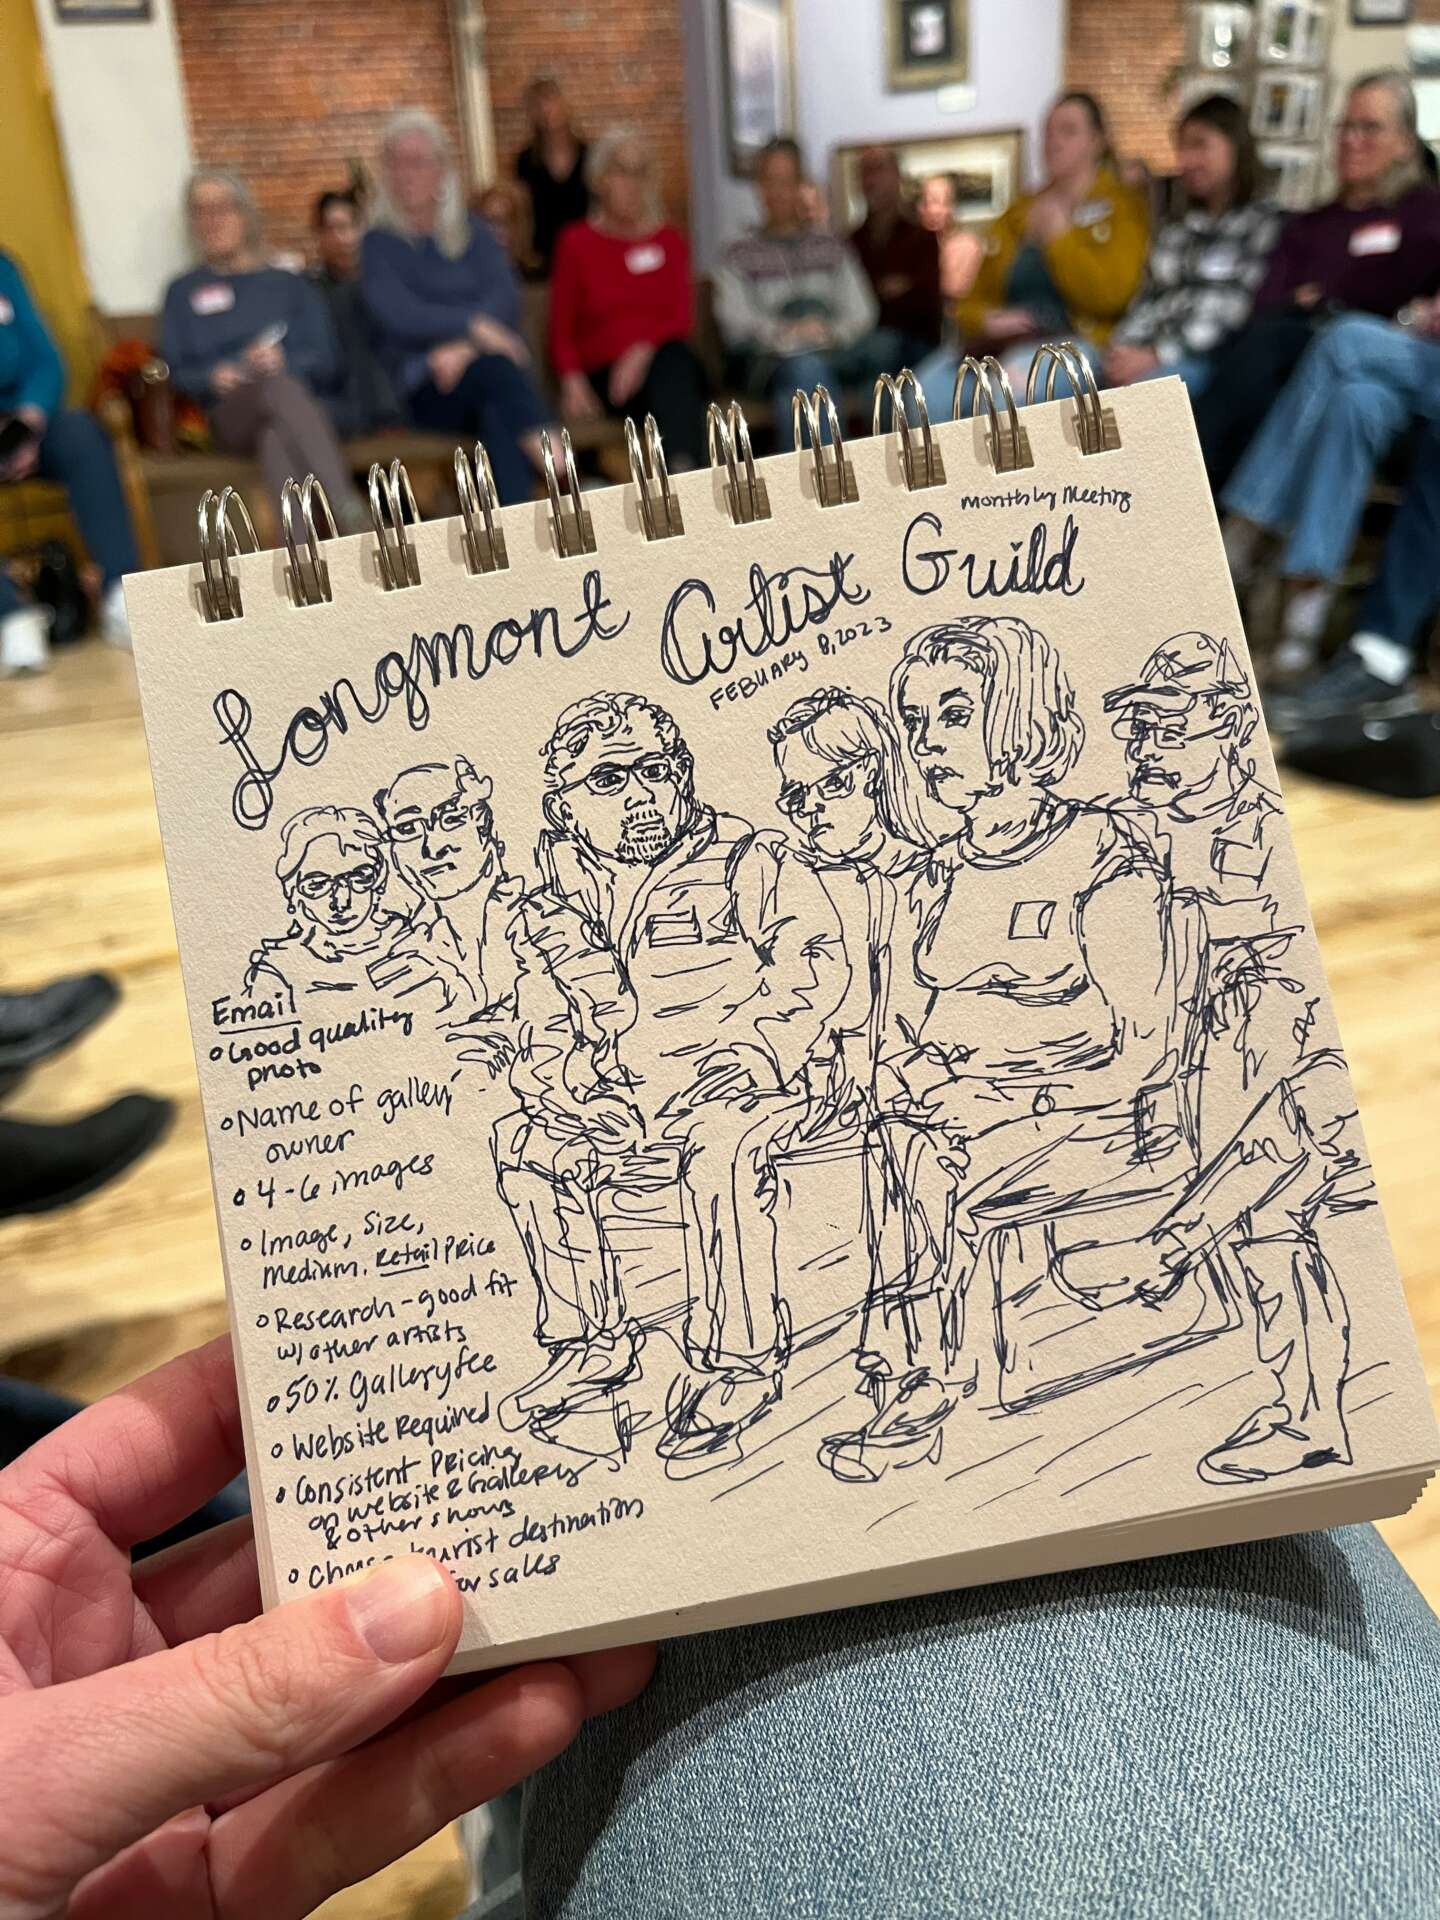 monthly meeting
Longmont Artist Guild
FEBUARY 8, 2023
Email
Good quality
photo
Name of gallery
owner
4-6 images
Image, size,
medium, Retail Price
Research - good fit
w/ other artists
50% Gallery fee
Website Required
Consistent Pricing
on website & Gallery
& other shows
tourist destination
for sales